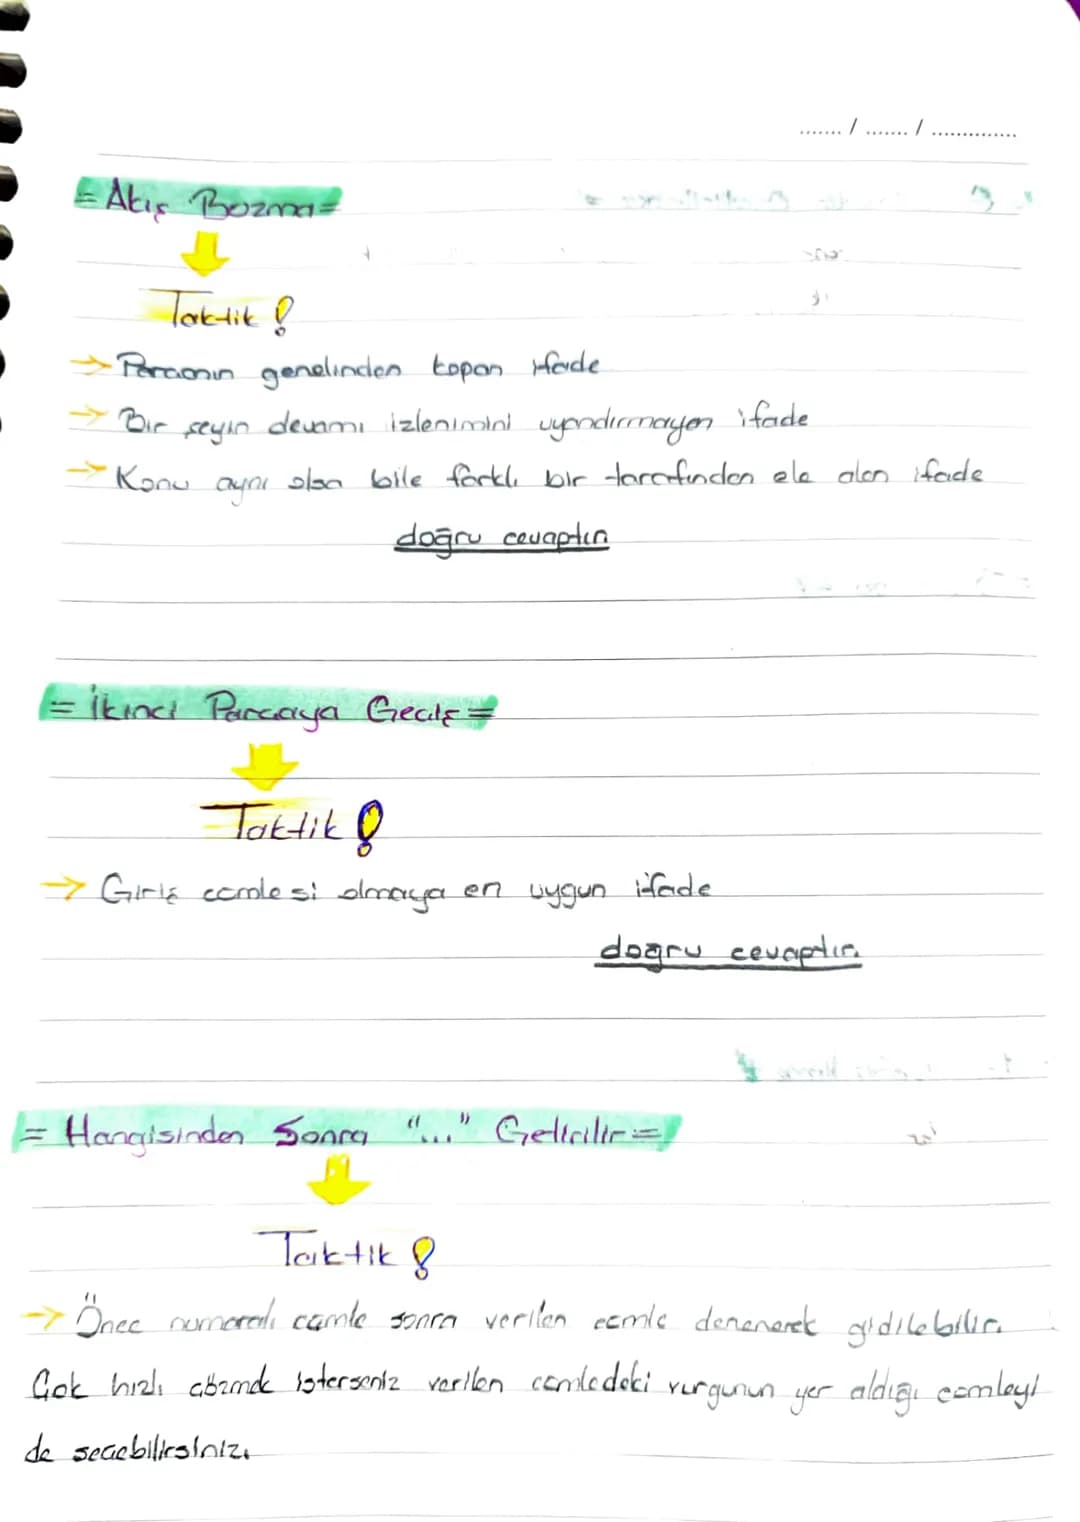 ....... / ....... / ..............
= Akış Bozma =
Taktik !
→ Parçanın genelinden kopan ifade
→ Bir şeyin devamı izlenimini uyandırmayan ifade
→ Konu aynı olsa bile farklı bir tarafından ele alan ifade
doğru cevaptır.
= İkinci Parçaya Geçiş =
Taktik !
→ Giriş cümlesi olmaya en uygun ifade
doğru cevaptır.
= Hangisinden Sonra "..." Getirilir =
Taktik !
→ Önce numaralı cümle sonra verilen cümle denenerek gidilebilir.
Çok hızlı çözmek isterseniz verilen cümledeki vurgunun yer aldığı cümleyi
de seçebilirsiniz.